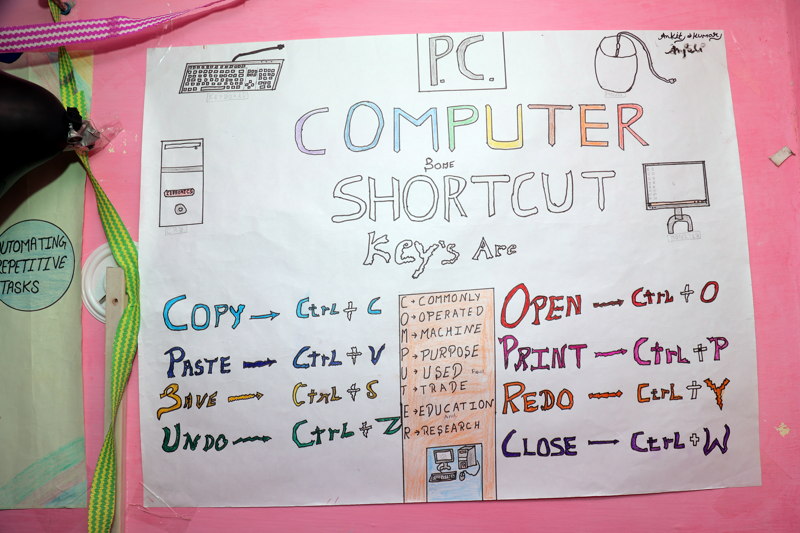 P.C.
Ankit Kumar
COMPUTER
SOME
SHORTCUT
Key's Are
ZEBRONICS
AUTOMATING
REPETITIVE
TASKS
COPY → CtrL + C
PASTE → CtrL + V
SAVE → CtrL + S
UNDO → CtrL + Z
C → COMMONLY
O → OPERATED
M → MACHINE
P → PURPOSE
U → USED For
T → TRADE
E → EDUCATION
And
R → RESEARCH
OPEN → CtrL + O
PRINT → CtrL + P
REDO → CtrL + Y
CLOSE → CtrL + W